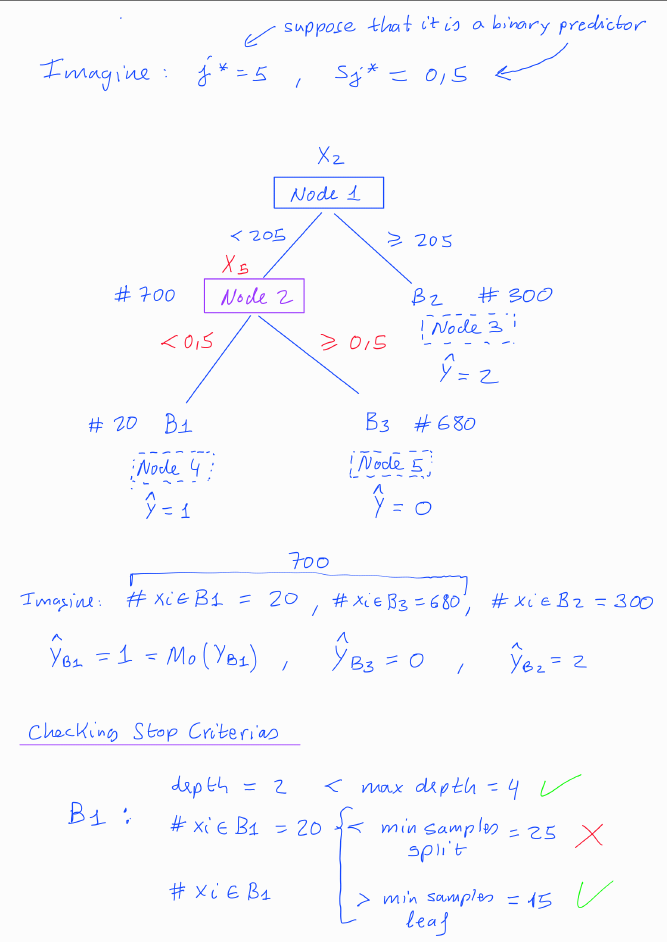 suppose that it is a binary predictor
Imagine: j* = 5, Sj* = 0,5
X2
Node 1
< 205 ≥ 205
X5
# 700 Node 2 B2 # 300
Node 3
< 0,5 ≥ 0,5
Ŷ = 2
# 20 B1 B3 # 680
Node 4 Node 5
Ŷ = 1 Ŷ = 0
700
Imagine: # xi ∈ B1 = 20, # xi ∈ B3 = 680, # xi ∈ B2 = 300
ŶB1 = 1 = Mo(YB1), ŶB3 = 0, ŶB2 = 2
Checking Stop Criterias
depth = 2 < max depth = 4 ✓
B1:
# xi ∈ B1 = 20 { < min samples split = 25 ✗
# xi ∈ B1 > min samples leaf = 15 ✓